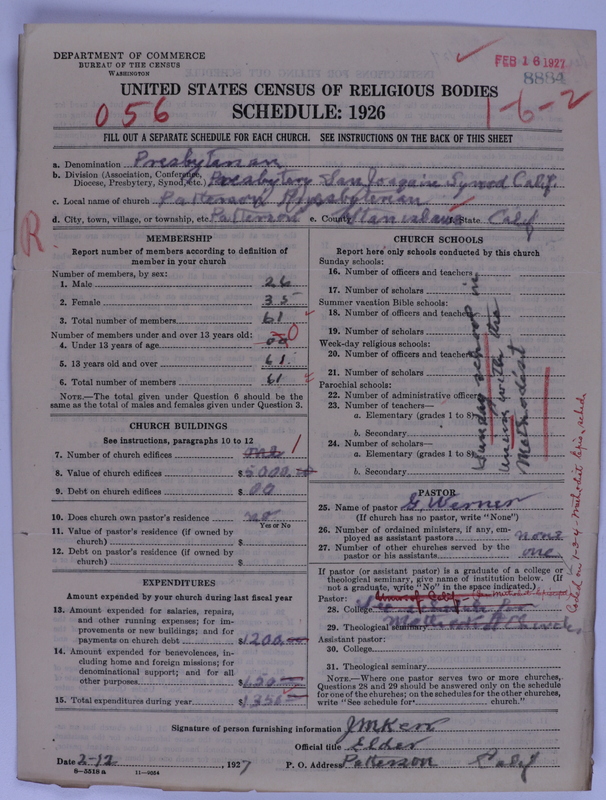 DEPARTMENT OF COMMERCE
BUREAU OF THE CENSUS
WASHINGTON
FEB 16 1927
8884
UNITED STATES CENSUS OF RELIGIOUS BODIES
SCHEDULE: 1926
056
1-6-2
FILL OUT A SEPARATE SCHEDULE FOR EACH CHURCH. SEE INSTRUCTIONS ON THE BACK OF THIS SHEET
a. Denomination Presbyterian
b. Division (Association, Conference, Diocese, Presbytery, Synod, etc.) Presbytery San Joaquin Synod Calif.
c. Local name of church Patterson Presbyterian
d. City, town, village, or township, etc. Patterson e. County Stanislaus f. State Calif
R.
MEMBERSHIP
Report number of members according to definition of
member in your church
Number of members, by sex:
1. Male 26
2. Female 35
3. Total number of members 61
Number of members under and over 13 years old:
4. Under 13 years of age 00 0
5. 13 years old and over 61
6. Total number of members 61
NOTE.—The total given under Question 6 should be
same as the total of males and females given under Question 3.
CHURCH BUILDINGS
See instructions, paragraphs 10 to 12
7. Number of church edifices one 1
8. Value of church edifices $5000.00
9. Debt on church edifices $00
10. Does church own pastor's residence no
Yes or No
11. Value of pastor's residence (if owned by
church) $
12. Debt on pastor's residence (if owned by
church) $
EXPENDITURES
Amount expended by your church during last fiscal year
13. Amount expended for salaries, repairs,
and other running expenses; for im-
provements or new buildings; and for
payments on church debt $1200.
14. Amount expended for benevolences, in-
cluding home and foreign missions; for
denominational support; and for all
other purposes $150
15. Total expenditures during year $1350
CHURCH SCHOOLS
Report here only schools conducted by this church
Sunday schools:
16. Number of officers and teachers
17. Number of scholars
Summer vacation Bible schools:
18. Number of officers and teachers
19. Number of scholars
Week-day religious schools:
20. Number of officers and teachers
21. Number of scholars
Parochial schools:
22. Number of administrative officers
23. Number of teachers—
a. Elementary (grades 1 to 8)
b. Secondary
24. Number of scholars—
a. Elementary (grades 1 to 8)
b. Secondary
Sunday school in
union with the
Methodist
PASTOR
25. Name of pastor G. Werner
(If church has no pastor, write "None")
26. Number of ordained ministers, if any, em-
ployed as assistant pastors none
27. Number of other churches served by the
pastor or his assistants one
If pastor (or assistant pastor) is a graduate of a college or
theological seminary, give name of institution below. (If
not a graduate, write "No" in the space indicated.)
Pastor:
28. College
29. Theological seminary
Assistant pastor:
30. College
31. Theological seminary
NOTE.—Where one pastor serves two or more churches,
Questions 28 and 29 should be answered only on the schedule
for one of the churches; on the schedules for the other churches,
write "See schedule for church."
Signature of person furnishing information J M Kerr
Official title Elder
Date 2-12, 1927 P. O. Address Patterson Calif
8-5518 a 11-9054